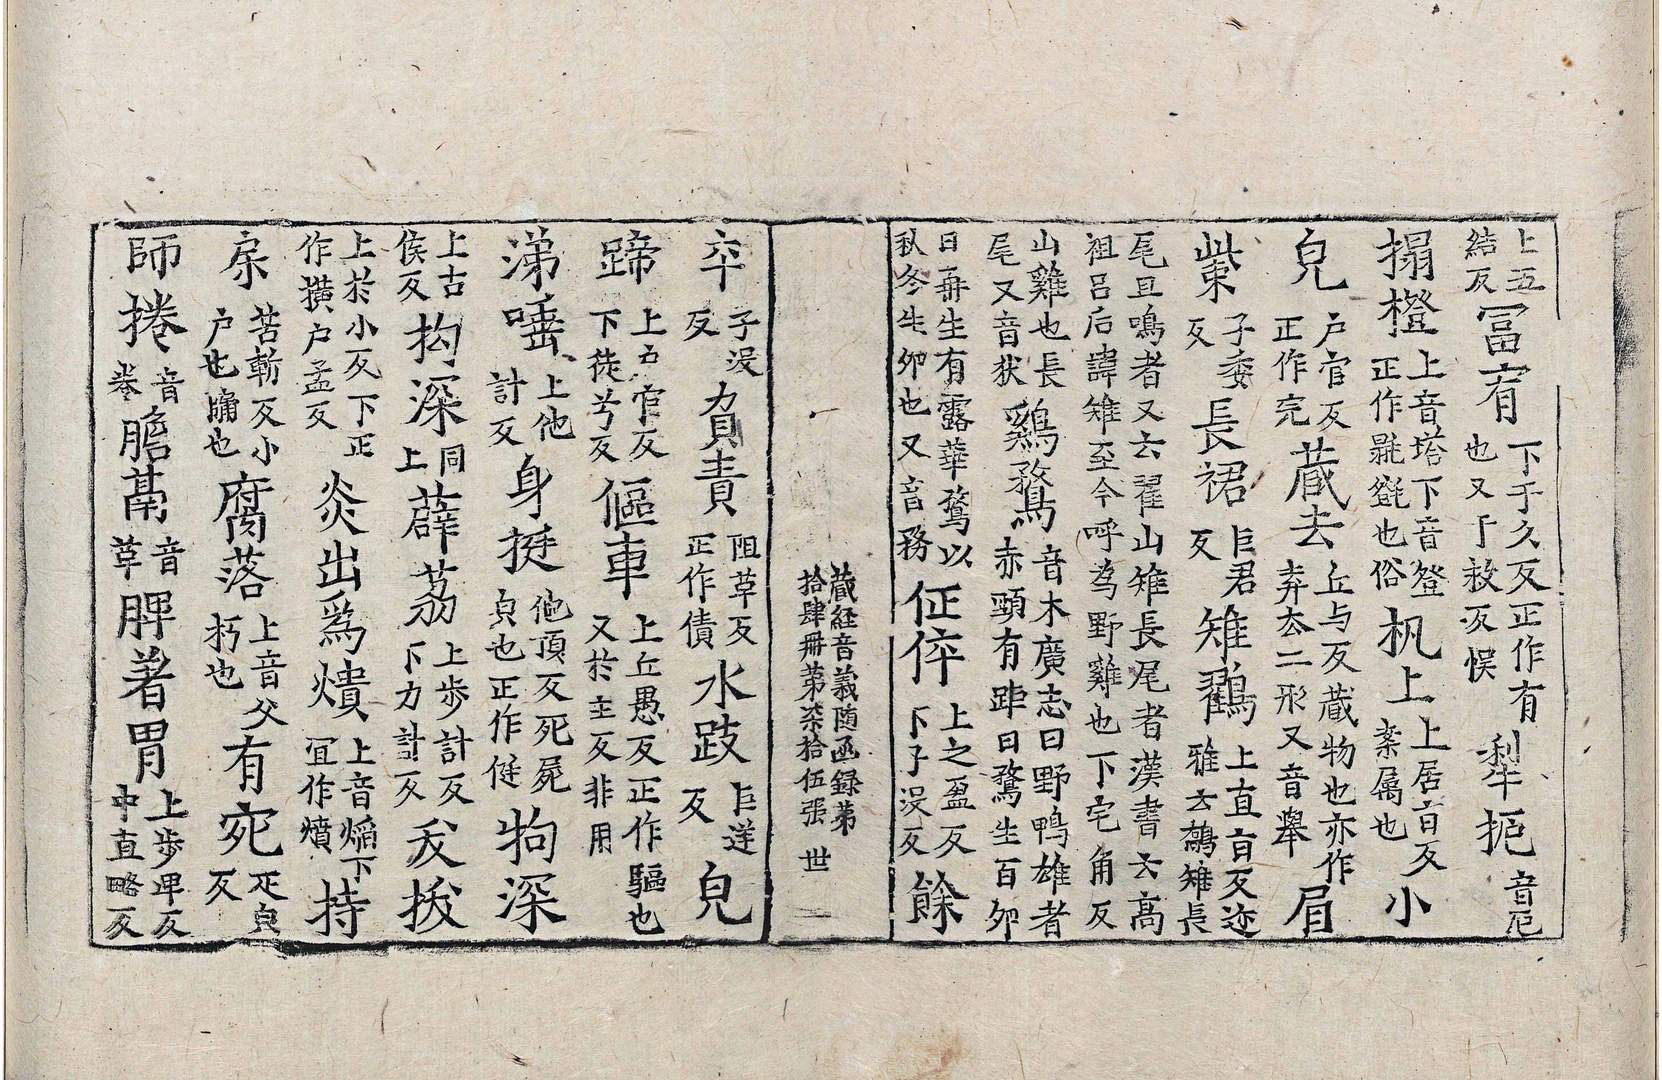 上五結反冨宥下于久反正作有也又于救反悮犁扼音厄
搨橙上音塔下音磴正作毾㲪也俗机上上居盲反案属也小
皃户官反正作完蔵去丘与反蔵物也亦作弆厺二形又音舉眉
紫子委反長裙巨君反雉鸐上直盲反迩雅云鸐雉長
尾且鳴者又云翟山雉長尾者漢書云高祖吕后諱雉至今呼為野雞也下宅角反
山雞也長尾又音狄鷄鶩音木廣志曰野鴨雄者赤頸有距曰鶩生百卵
日再生有露華鶩以秋冬生卵也又音務怔倅上之盈反下子没反餘
蔵経音義随函録第拾肆冊第柒拾伍張 世
卒子没反負責阻草反正作債水跂巨逆反皃
蹄上五官反下徒兮反傴車上丘愚反正作驅也又於主反非用
涕唾上他計反身挺他頂反死屍皃也正作侹狗深
上古侯反抅深同上薜荔上步計反下力計反犮拔
上於小反下正作撗户孟反炎出爲燌上音㷔下冝作燌持
㡴苦斬反小户也牖也腐落上音父朽也有宛疋皃反
師捲音卷膽鬲音草脾著胃上步卑反中直略反